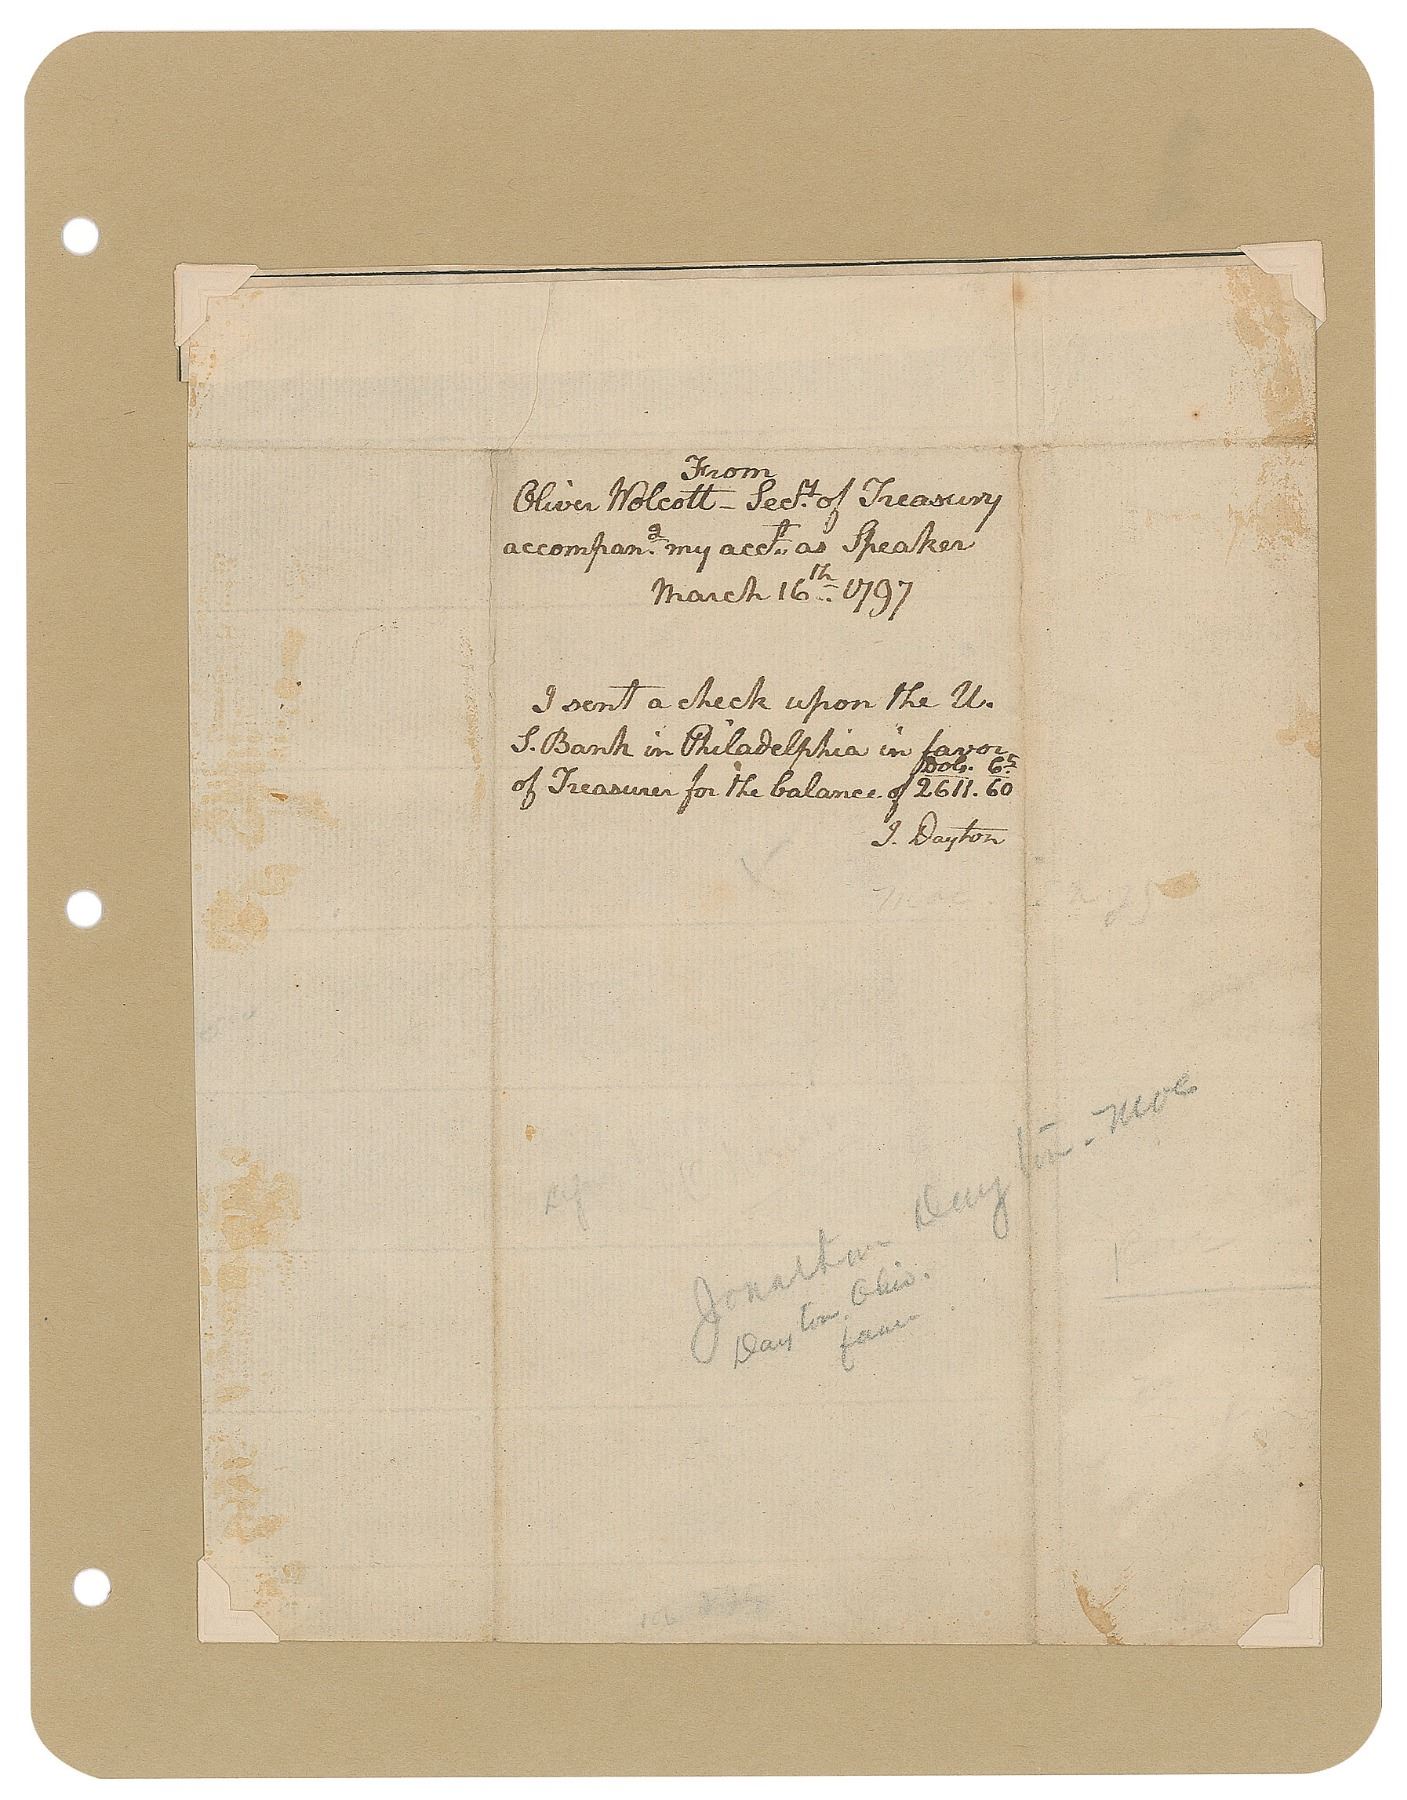 From
Oliver Wolcott - Secty. of Treasury
accompang. my acct. as Speaker
March 16th. 1797
I sent a check upon the U.
S. Bank in Philadelphia in favor
Dols. Cs
of Treasurer for the balance of 2611.60
J. Dayton
Jonathan Dayton - Moc
Dayton, Ohio.